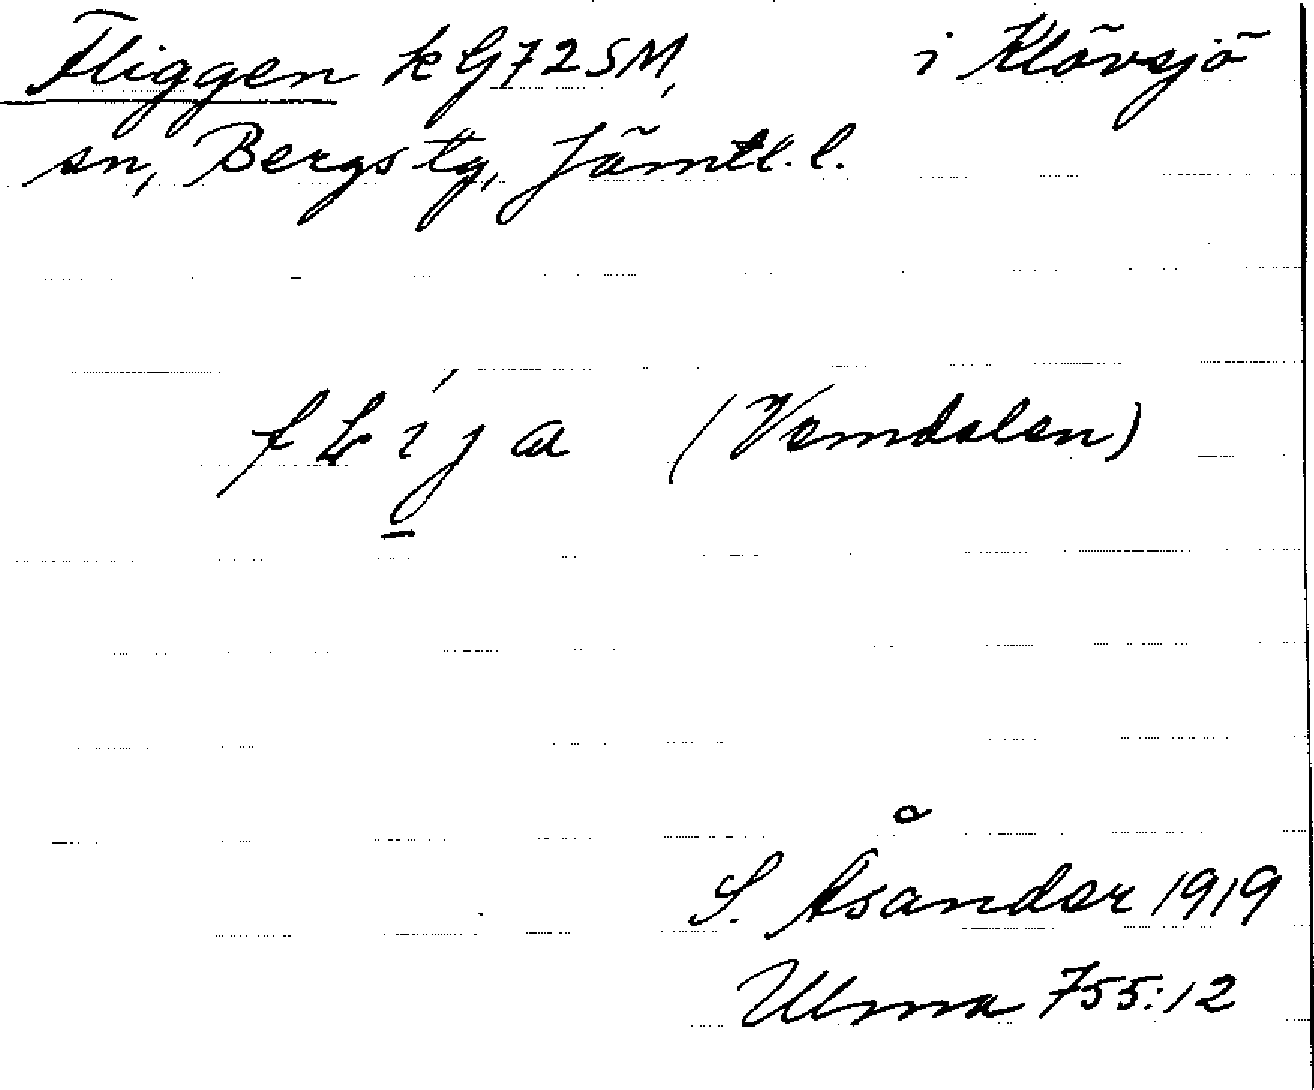 Fliggen k G725M, i Klövsjö
sn, Bergs tg, Jämtl. l.
(Vemdalen)
S. Åsander 1919
Ulma 755:12